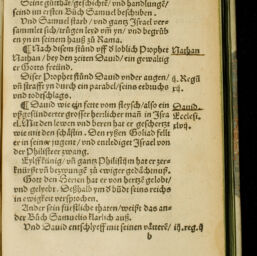 Seine gůtthat/geschicht/ vnd handlung/
seind im ersten Bůch Samuel beschriben.
Vnd Samuel starb/ vnd gantz Israel ver-
samlet sich/ trůgen leyd vm̃ yn/ vnd begrůb
en yn in seinem hauß zů Rama.
Nach disem stůnd vff ď loblich Prophet
Nathan
Nathan/ bey den zeiten Dauid/ ein gewaltig
er Gotts freünd.
Diser Prophet stůnd Dauid vnder augen/
ij. Regū
vñ strafft yn durch ein parabel/seins eebruchs
xij.
vnd todtschlags.
Dauid wie ein fette vom fleysch/also ein
Dauid.
vßgesünderter grosser herrlicher mañ in Isra
Ecclesi.
el. Mit den lewen vnd beren hat er geschertzt
xlvij.
wie mit den schäflin. Den rysen Goliad fellt
er in seiner jugent/ vnd entlediget Israel von
der Philisteer zwang.
Eylff künig/ vñ gantz Philistim hat er zer-
knürßt vñ bezwungē zů ewiger gedächtnuß.
Gott den Herren hat er von hertzē gelobt/
vnd geliebt. Deßhalb ym d' bůd seins reichs
in ewigkeit versprochen.
Ander sein fürstliche thaten/weißt das an-
der Bůch Samuelis klarlich auß.
Vnd Dauid entschlyeff mit seinen vätterē/
iij.reg.ij
b